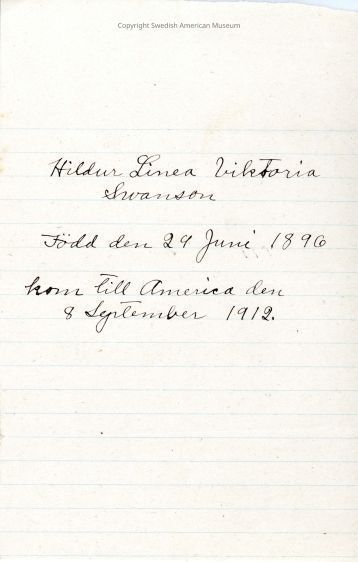 Copyright Swedish American Museum
Hildur Linea Viktoria
Swanson
Född den 29 Juni 1896
kom till America den
8 September 1912.